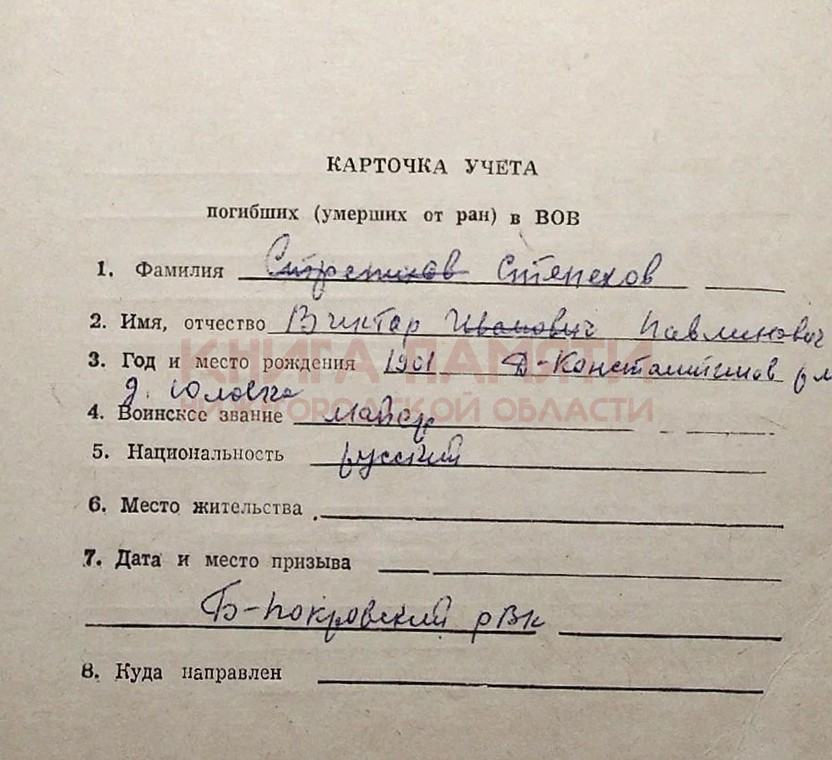 КАРТОЧКА УЧЕТА
погибших (умерших от ран) в ВОВ
1. Фамилия Стрепихов Степехов
2. Имя, отчество Виктор Иванович Павлинович
3. Год и место рождения 1901 Д-Константинов р
КНИГА ПАМЯТИ
д. Юловка
4. Воинское звание майор
НИЖЕГОРОДСКОЙ ОБЛАСТИ
5. Национальность русский
6. Место жительства
7. Дата и место призыва
Б-Покровский рВк
8. Куда направлен